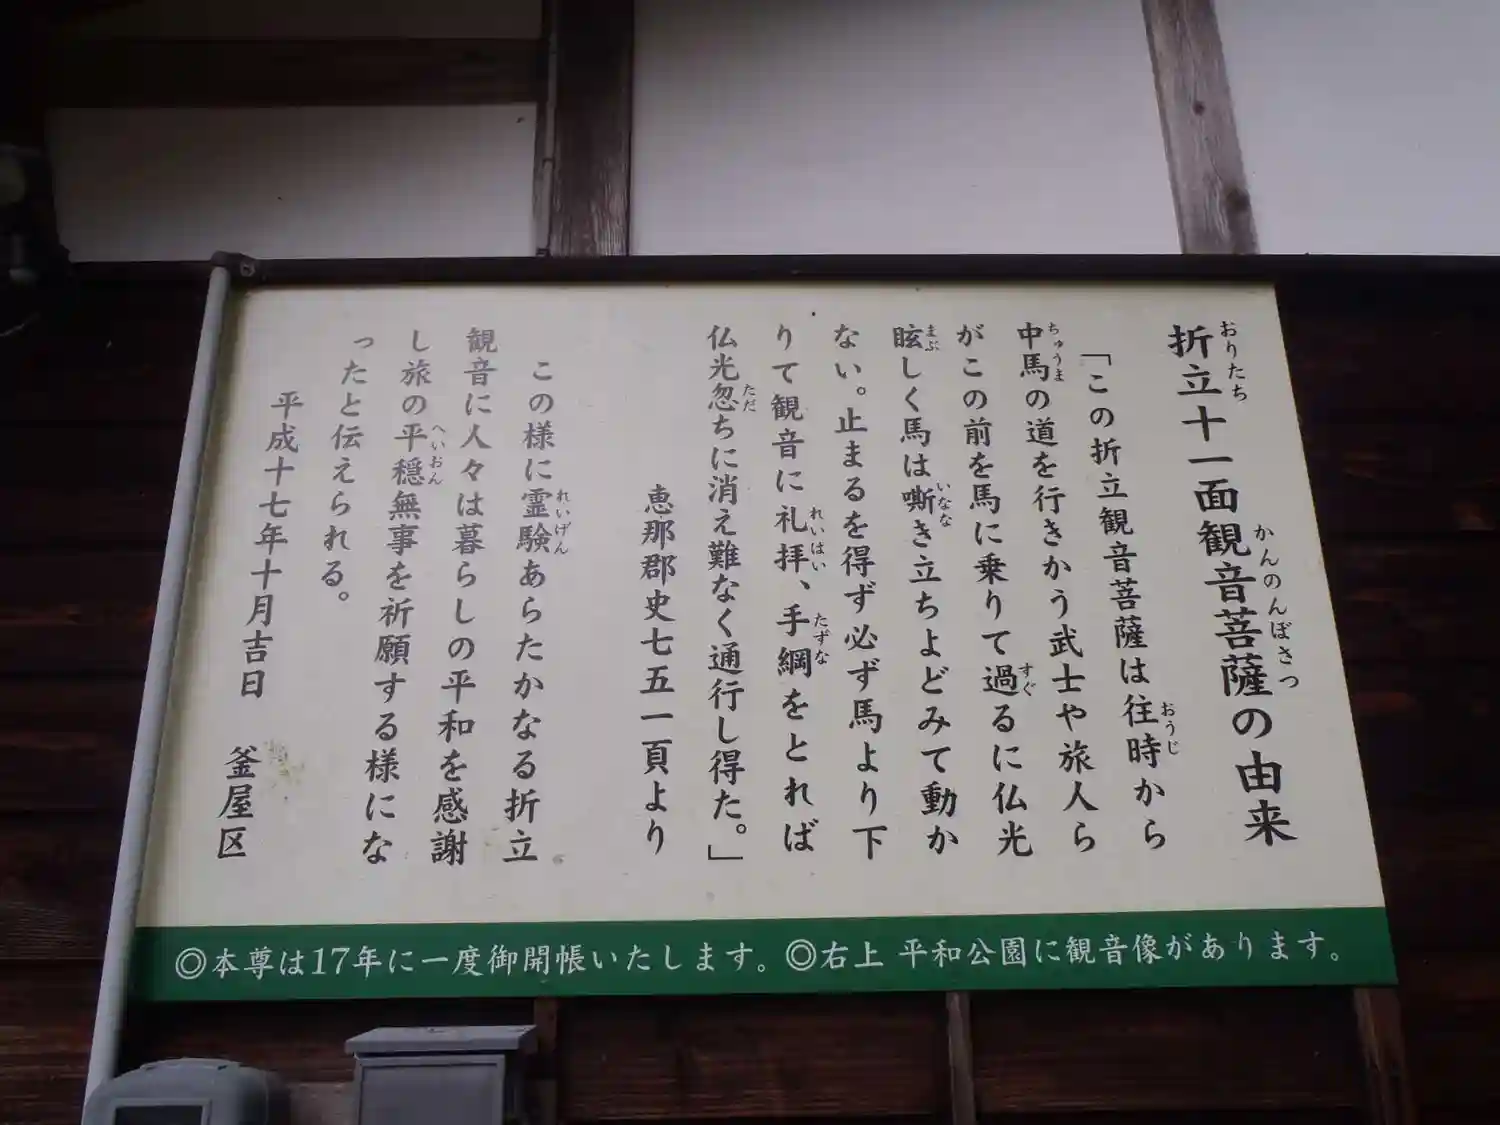 折立十一面観音菩薩の由来
おりたち かんのんぼさつ
「この折立観音菩薩は往時から
おうじ
中馬の道を行きかう武士や旅人ら
ちゅうま
がこの前を馬に乗りて過るに仏光
すぐ
眩しく馬は嘶き立ちよどみて動か
まぶ いなな
ない。止まるを得ず必ず馬より下
りて観音に礼拝、手綱をとれば
れいはい たずな
仏光忽ちに消え難なく通行し得た。」
ただ
恵那郡史七五一頁より
この様に霊験あらたかなる折立
れいげん
観音に人々は暮らしの平和を感謝
し旅の平穏無事を祈願する様にな
へいおん
ったと伝えられる。
平成十七年十月吉日 釜屋区
◎本尊は17年に一度御開帳いたします。◎右上 平和公園に観音像があります。